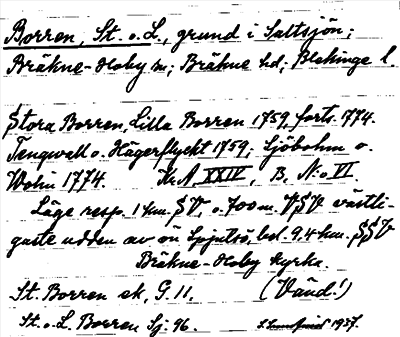 Borren, St. o. L., grund i Saltsjön;
Bräkne-Hoby sn; Bräkne hd; Blekinge l.
Stora Borren, Lilla Borren 1759, forts. 1774.
Tengwall o. Hägerflycht 1759; Sjöbohm o.
Wolin 1774. Kr.A XXIV, B, N:o VI.
Läge resp. 1 km. SV, o. 700 m. VSV västli-
gaste udden av ön Spjutsö, bel. 9,4 km. SSV
Bräkne-Hoby kyrka.
St. Borren ek, G. 11. (Vänd!)
St. o. L. Borren Sj. 96. 1937.